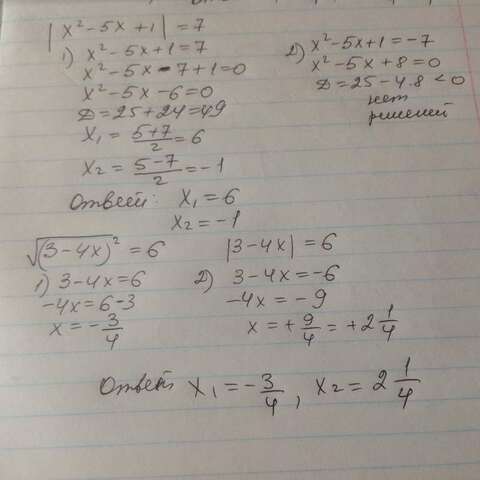 |x² - 5x + 1| = 7
1) x² - 5x + 1 = 7
x² - 5x - 7 + 1 = 0
x² - 5x - 6 = 0
D = 25 + 24 = 49
x₁ = (5+7)/2 = 6
x₂ = (5-7)/2 = -1
2) x² - 5x + 1 = -7
x² - 5x + 8 = 0
D = 25 - 4·8 < 0
нет
решений
Ответ: x₁ = 6
x₂ = -1
√(3-4x)² = 6
|3-4x| = 6
1) 3-4x = 6
-4x = 6-3
x = -3/4
2) 3-4x = -6
-4x = -9
x = +9/4 = +2 1/4
Ответ x₁ = -3/4, x₂ = 2 1/4